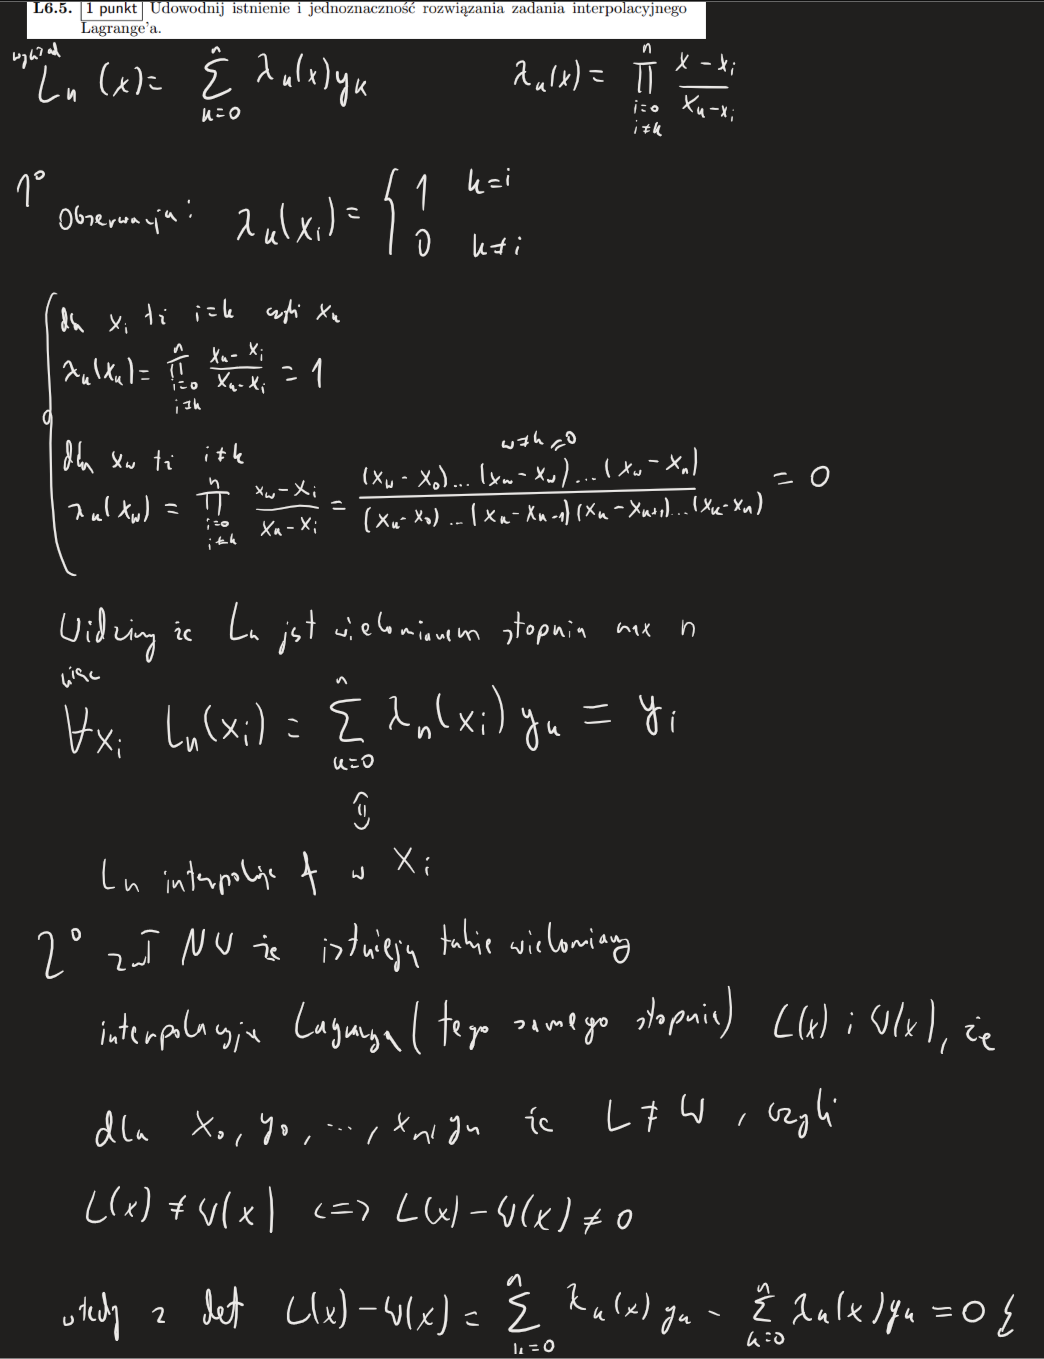 L6.5. 1 punkt Udowodnij istnienie i jednoznaczność rozwiązania zadania interpolacyjnego
Lagrange'a.
wykład
Lₙ(x) = ∑_{k=0}^{n} λₖ(x) yₖ    λₖ(x) = ∏_{i=0, i≠k}^{n} (x - xᵢ)/(xₖ - xᵢ)
1° Obserwacja: λₖ(xᵢ) = { 1 k=i
0 k≠i
dla xᵢ tż i=k czyli xₖ
λₖ(xₖ) = ∏_{i=0, i≠k}^{n} (xₖ - xᵢ)/(xₖ - xᵢ) = 1
w≠k =0
dla x_w tż i≠k
λₖ(x_w) = ∏_{i=0, i≠k}^{n} (x_w - xᵢ)/(xₖ - xᵢ) = ((x_w - x₀)...(x_w - x_w)...(x_w - xₙ))/((xₖ - x₀)...(xₖ - xₖ₋₁)(xₖ - xₖ₊₁)...(xₖ - xₙ)) = 0
Widzimy że Lₙ jest wielomianem stopnia max n
więc
∀xᵢ Lₙ(xᵢ) = ∑_{k=0}^{n} λₙ(xᵢ) yₖ = yᵢ
⇕
Lₙ interpoluje f w xᵢ
2° zał NW że istnieją takie wielomiany
interpolacyjne Lagrange'a (tego samego stopnia) L(x) i W(x), że
dla x₀, y₀, ..., xₙ, yₙ że L ≠ W, czyli
L(x) ≠ W(x) <=> L(x) - W(x) ≠ 0
wtedy z def L(x) - W(x) = ∑_{k=0}^{n} λₖ(x) yₖ - ∑_{k=0}^{n} λₖ(x) yₖ = 0 ↯